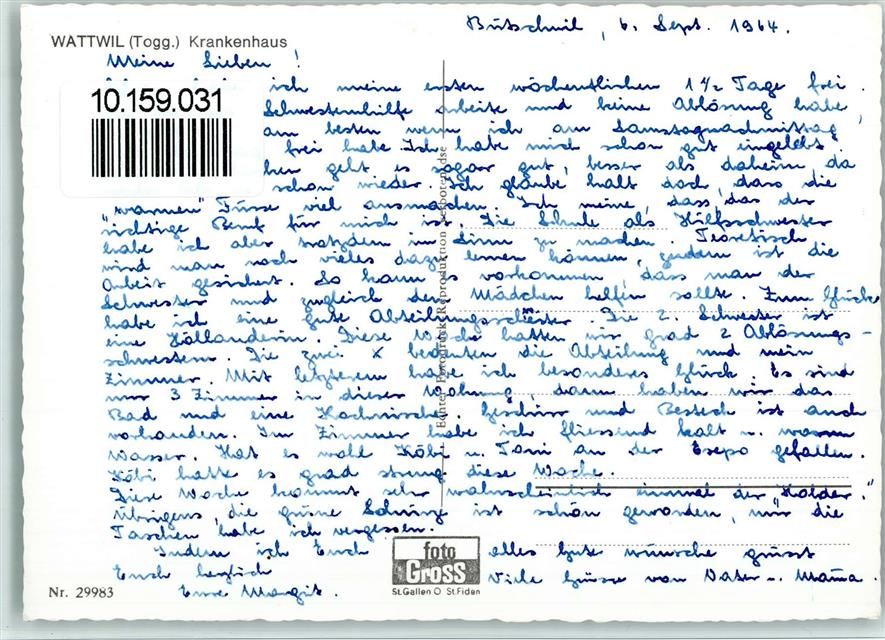 Bütschwil, 6. Sept. 1964.
WATTWIL (Togg.) Krankenhaus
Meine Lieben!
ich meine ersten wöchentlichen 1 1/2 Tage frei.
10.159.031
Schwesternhilfe arbeite und keine Ablösung habe,
am besten wenn ich am Samstagnachmittag,
frei habe. Ich habe mich schon gut eingelebt.
geht es sogar gut, besser als daheim da
schon wieder. Ich glaube halt doch, dass die
"warmen" Füsse viel ausmachen. Ich meine, dass das der
richtige Beruf für mich ist. Die Schule als Hülfsschwester
habe ich aber trotzdem im Sinn zu machen. Teoretisch
wird man noch vieles dazu lernen können, zudem ist die
Arbeit gesichert. So kann es vorkommen, dass man der
Schwester und zugleich den Mädchen helfen sollte. Zum Glück
habe ich eine gute Abteilungsschwester. Die 2. Schwester ist
eine Holländerin. Diese Woche hatten wir grad 2 Ablösungs-
schwestern. Die zwei X bedeuten die Abteilung und mein
Zimmer. Mit letzterem habe ich besonderes Glück. Es sind
nur 3 Zimmer in dieser Wohnung, dann haben wir das
Bad und eine Kochnische. Geschirr und Besteck ist auch
vorhanden. Im Zimmer habe ich fliessend kalt u. warm
Wasser. Hat es wohl Köbi u. Toni an der Expo gefallen.
Köbi hatte es grad streng diese Woche.
Diese Woche kommt sehr wahrscheinlich einmal der "Holder".
Übrigens, die grüne Schürze ist schön geworden, nur die
Taschen habe ich vergessen.
Indem ich Euch alles Gute wünsche grüsst
Euch herzlich
Eure Margrit.
Viele Grüsse von Vater u. Mama.
Echter Fotodruck Reproduktion verboten
foto
GROSS
St.Gallen O St.Fiden
Nr. 29983